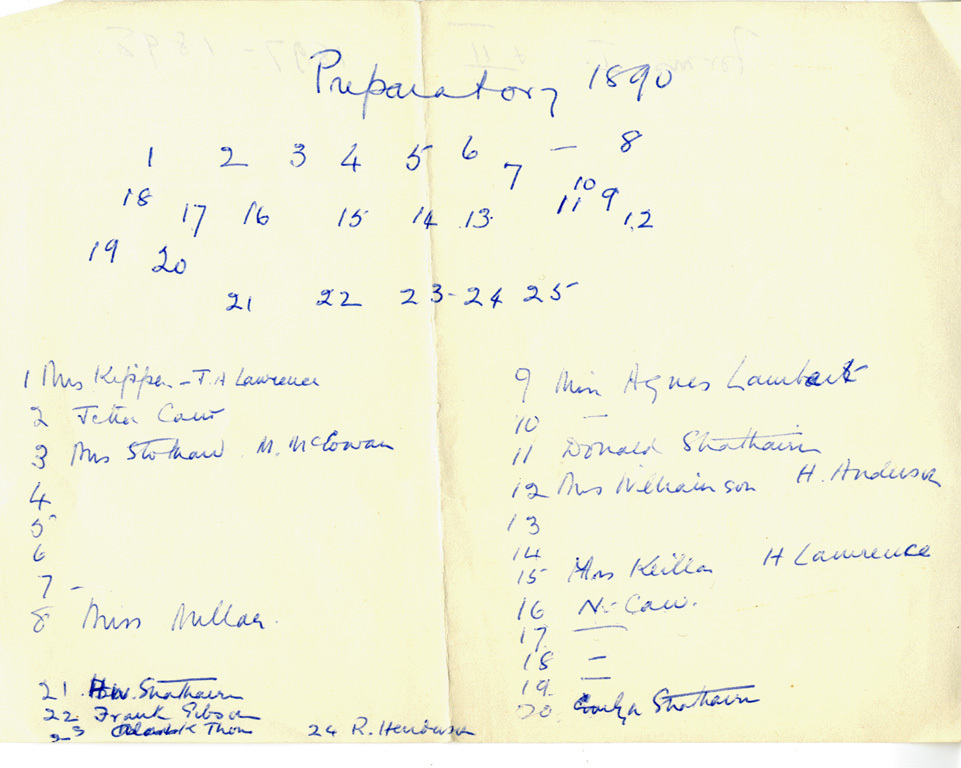 Preparatory 1890
1 2 3 4 5 6 7 — 8
18 17 16 15 14 13 11 10 9 12
19 20
21 22 23 - 24 25
1 Mrs Kipper - T. A Lawrence
2 Caw
3 Mrs Stothard M. McEowan
4
5
6
7 -
8 Miss Millar.
9 Miss Agnes Lambert
10 —
11 Donald Strathairn
12 Mrs Williamson H. Anderson
13
14
15 Mrs Keillar H Lawrence
16 N. Caw.
17 —
18 —
19 —
20 Strathairn
21 H.W. Strathairn
22 Frank Gibson
23 Thom
24 R. Henderson